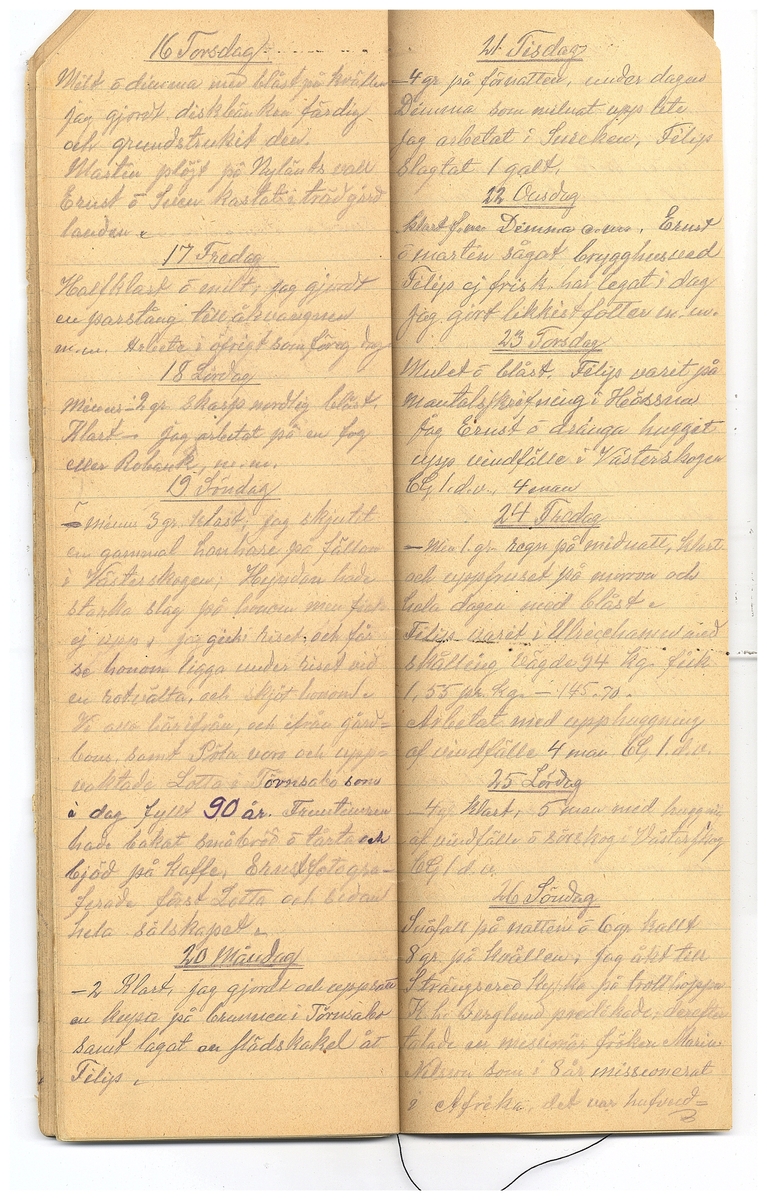 16 Torsdag
Milt ö dimma med blåst på kvällen
jag gjordt diskbänken färdig
och grundstrukit den.
Martin plöjt på Nylänts vall
Ernst ö Sven kastat i trädgård
landen.
17 Fredag
Halfklart ö milt, jag gjordt
en parstång till åkvangnen
m.m. Arbete i öfrigt som föreg. dag
18 Lördag
Minus -2 gr skarp nordlig blåst.
Klart - jag arbetat på en
eller m.m.
19 Söndag
- Minus 3 gr. klart, jag skjutit
en gammal hanhare på fällan
i Västerskogen; Hyndan hade
starka slag på honom men fick
ej upp, jag gick i riset och får
se honom ligga under riset vid
en rotvälta, och skjöt honom.
Vi alla härifrån, och ifrån gård=
bout, samt Göta voro och upp=
vaktade Lotta i Törnsabo som
i dag fyllt 90 år.
hade bakat småbröd ö tårta och
bjöd på kaffe, Ernst fotogra=
ferade först Lotta och sedan
hela sälskapet.
20 Måndag
-2 Klart, jag gjordt och uppsatt
en kupa på brunnen i Törnsabo
samt lagat en flädskakel åt
Filip.
21 Tisdag
-4 gr på förnatten, under dagen
Dimma som milnat upp lite
jag arbetat i Snickeri, Filip
slagtat 1 galt.
22 Onsdag
klart f.m Dimma e.m. Ernst
ö martin sågat brygghusved
Filip ej frisk. har legat i dag
jag gjort m.m.
23 Torsdag
Mulet ö blåst. Filip varit på
mantalskrifning i Hössna
jag Ernst ö dränga hugget
upp vindfälle i Västerskogen
4 man
24 Fredag
- Min 1. gr. regn på midnatt, klart
och uppfruset på morron och
hela dagen med blåst.
Filip varit i Ulricehamn med
skålleng vägde 94 kg. fick
1,55 pr. kg. - 145.70.
Arbetat med upphuggning
af vindfälle 4 man
25 Lördag
-4 gr klart, 5 man med huggning
af vindfälle ö sörskog i Västerskog
26 Söndag
Snöfall på natten ö 6 gr kallt
8 gr. på kvällen, jag åkt till
Strängsered Kyrka på trollhoppa
K.h. Berglund predikade, derefter
talade en missionär fröken Maria
Nilsson som i 8 år missionerat
i Afrika, det var hufvud=